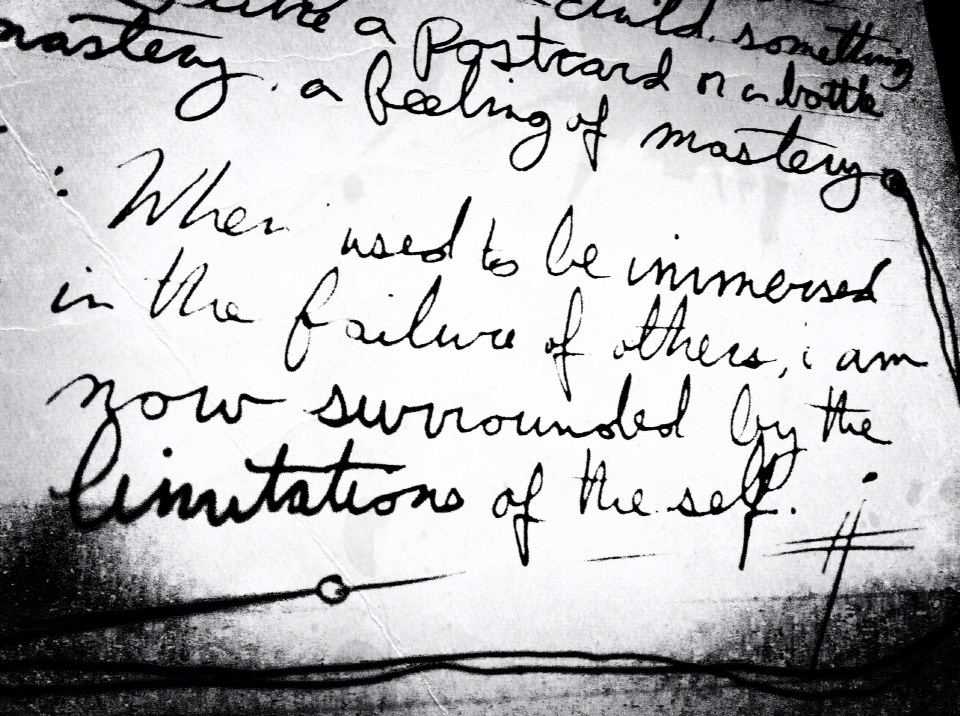 like a child. something
mastery. a Postcard or a bottle
a feeling of mastery
: When used to be immersed
in the failure of others, i am
now surrounded by the
limitations of the self.
#